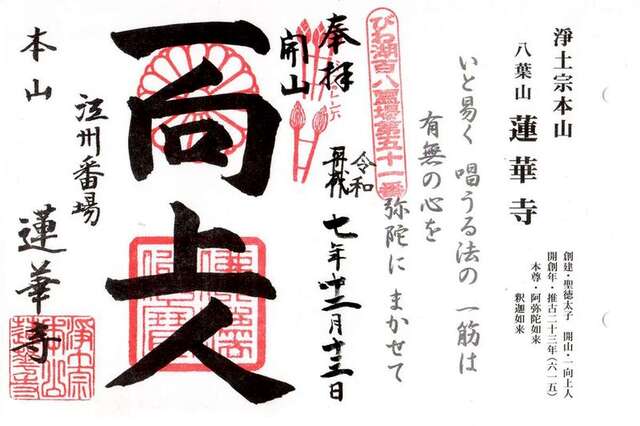 浄土宗本山
八葉山 蓮華寺
創建・聖徳太子 開山・一向上人
開創年・推古二十三年(六一五)
本尊・阿弥陀如来
釈迦如来
いと易く 唱うる法の 一筋は
有無の心を
弥陀に まかせて
びわ湖百八霊場第五十一番
奉拝
令和
七年十二月十三日
開山
一向上人
江州番場
本山
蓮華寺